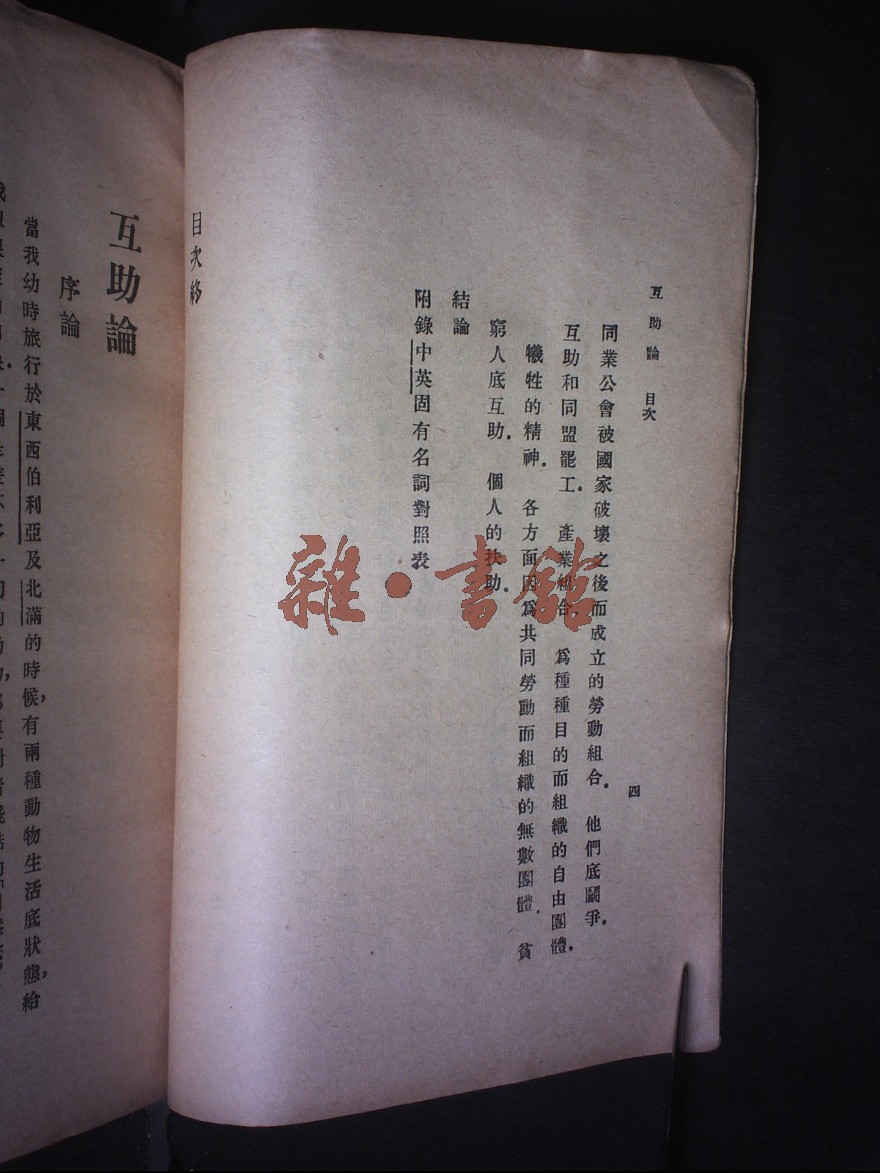 互助論　目次
四
同業公會被國家破壞之後而成立的勞動組合．　他們底鬪爭．
互助和同盟罷工．　產業組合．　為種種目的而組織的自由團體．
犧牲的精神．　各方面因為共同勞動而組織的無數團體．　貧
窮人底互助．　個人的扶助．
結論
附錄中英固有名詞對照表
目次終
雜·書館
互助論
序論
當我幼時旅行於東西伯利亞及北滿的時候，有兩種動物生活底狀態，給